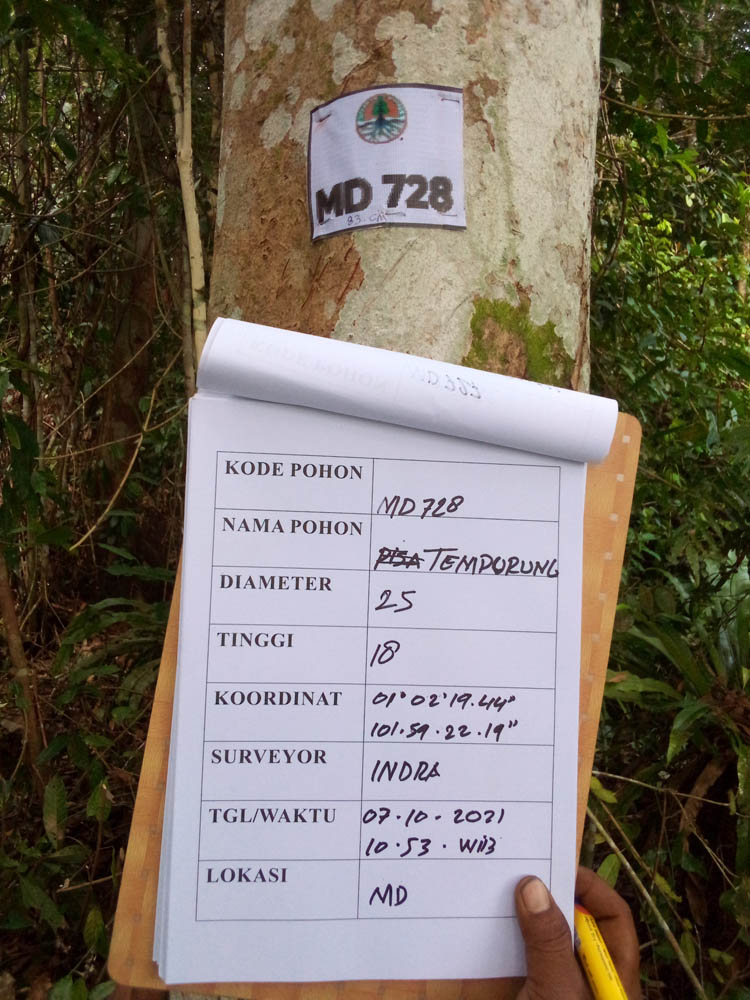 MD 728
83.CM
KODE POHON MD 728
NAMA POHON TEMPURUNG
DIAMETER 25
TINGGI 18
KOORDINAT 01° 02' 19.44"
101.59.22.19"
SURVEYOR INDRA
TGL/WAKTU 07.10.2021
10.53.WIB
LOKASI MD